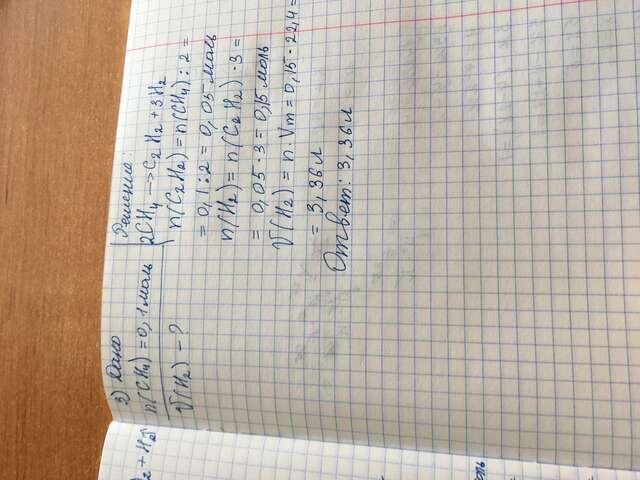 3) Дано
n(CH₄) = 0,1 моль
V(H₂) - ?
Решение
2CH₄ → C₂H₂ + 3H₂
n(C₂H₂) = n(CH₄) : 2 =
= 0,1 : 2 = 0,05 моль
n(H₂) = n(C₂H₂) · 3 =
= 0,05 · 3 = 0,15 моль
V(H₂) = n · Vm = 0,15 · 22,4 =
= 3,36 л
Ответ: 3,36 л